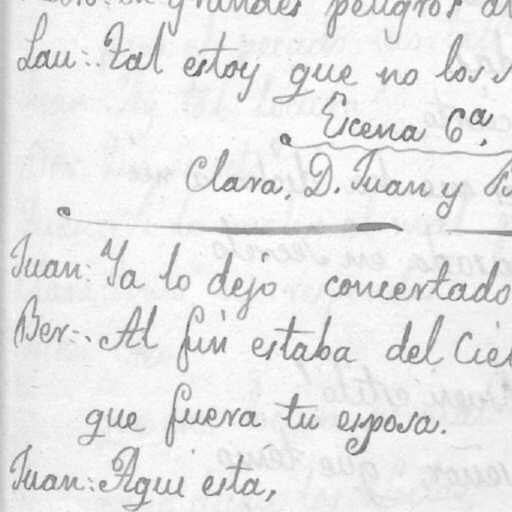 en grandes peligros
Lau: Tal estoy que no los
Escena 6ª.
Clara, D. Juan y
Juan: Ya lo dejo concertado
Ber:. Al fin estaba del Cie
que fuera tu esposa.
Juan: Aqui esta,